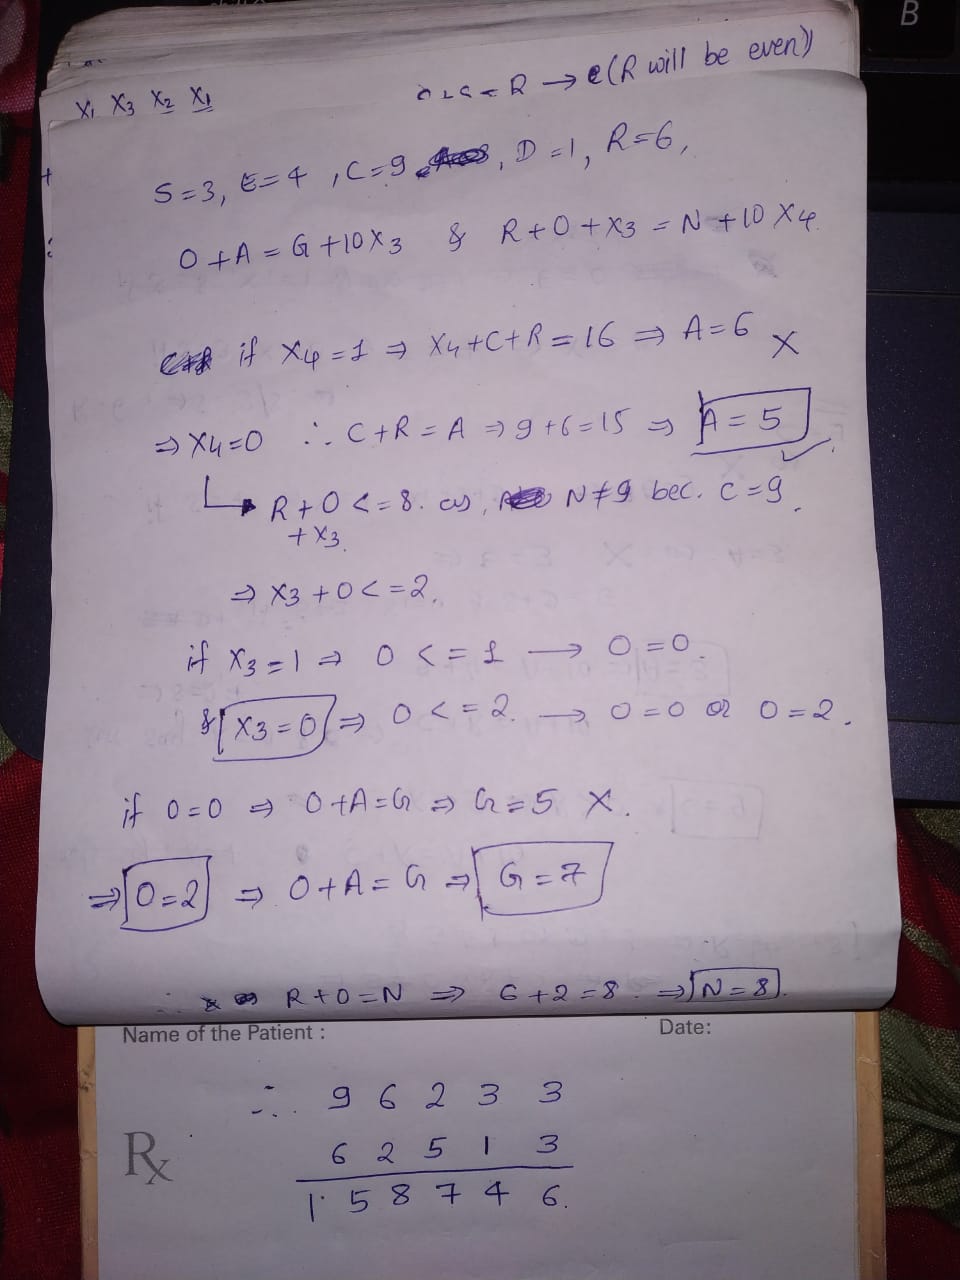 B
X₁ X₃ X₂ X₁
R → e (R will be even)
S=3, E=4, C=9, D=1, R=6,
O+A = G+10X₃ & R+O+X₃ = N+10X₄
if X₄=1 ⇒ X₄+C+R=16 ⇒ A=6 X
⇒ X₄=0 ∴ C+R=A ⇒ 9+6=15 ⇒ A=5 ✓
↳ R+O <=8. as, N≠9 bec. C=9.
+X₃
⇒ X₃+O <=2.
if X₃=1 ⇒ O <=1 → O=0.
& X₃=0 ⇒ O <=2. → O=0 or O=2.
if O=0 ⇒ O+A=G ⇒ G=5 X.
⇒ O=2 ⇒ O+A=G ⇒ G=7
∴ R+O=N ⇒ 6+2=8. ⇒ N=8.
Name of the Patient : Date:
∴ 9 6 2 3 3
Rx 6 2 5 1 3
1 5 8 7 4 6.